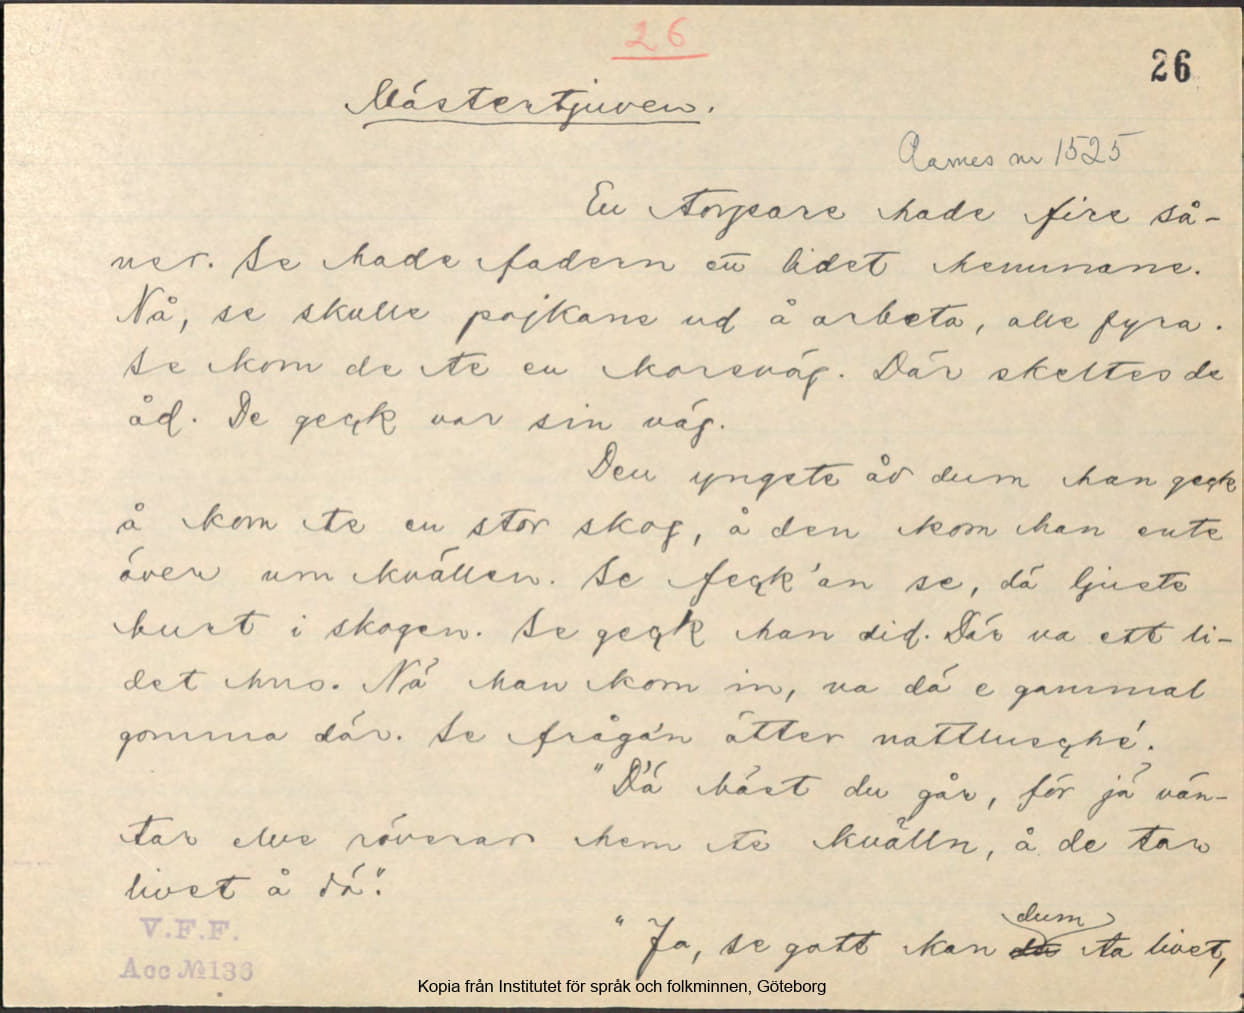 26
26
Mästertjuven.
Aarnes nr 1525
En torpare hade fire så-
ner. Se hade fadern en lidet hemmane.
Nå, se skulle pojkane ud å arbeta, alle fyra.
Se kom de te en korsväg. Där skeltes de
åd. De geck var sin väg.
Den yngste åv dum han geck
å kom te en stor skog, å den kom han ente
över um kvällen. Se feck'an se, dä ljuste
burt i skogen. Se geck han did. Där va ett li-
det hus. Nä han kom in, va dä e gammal
gomma där. Se frågá'n ätter nattlusché.
"Dä bäst du går, för jä vän-
tar elve röverar hem te kvälln, å de tar
livet å dä".
"Ja, se gott kan dum ta livet,
V.F.F.
Acc №133
Kopia från Institutet för språk och folkminnen, Göteborg